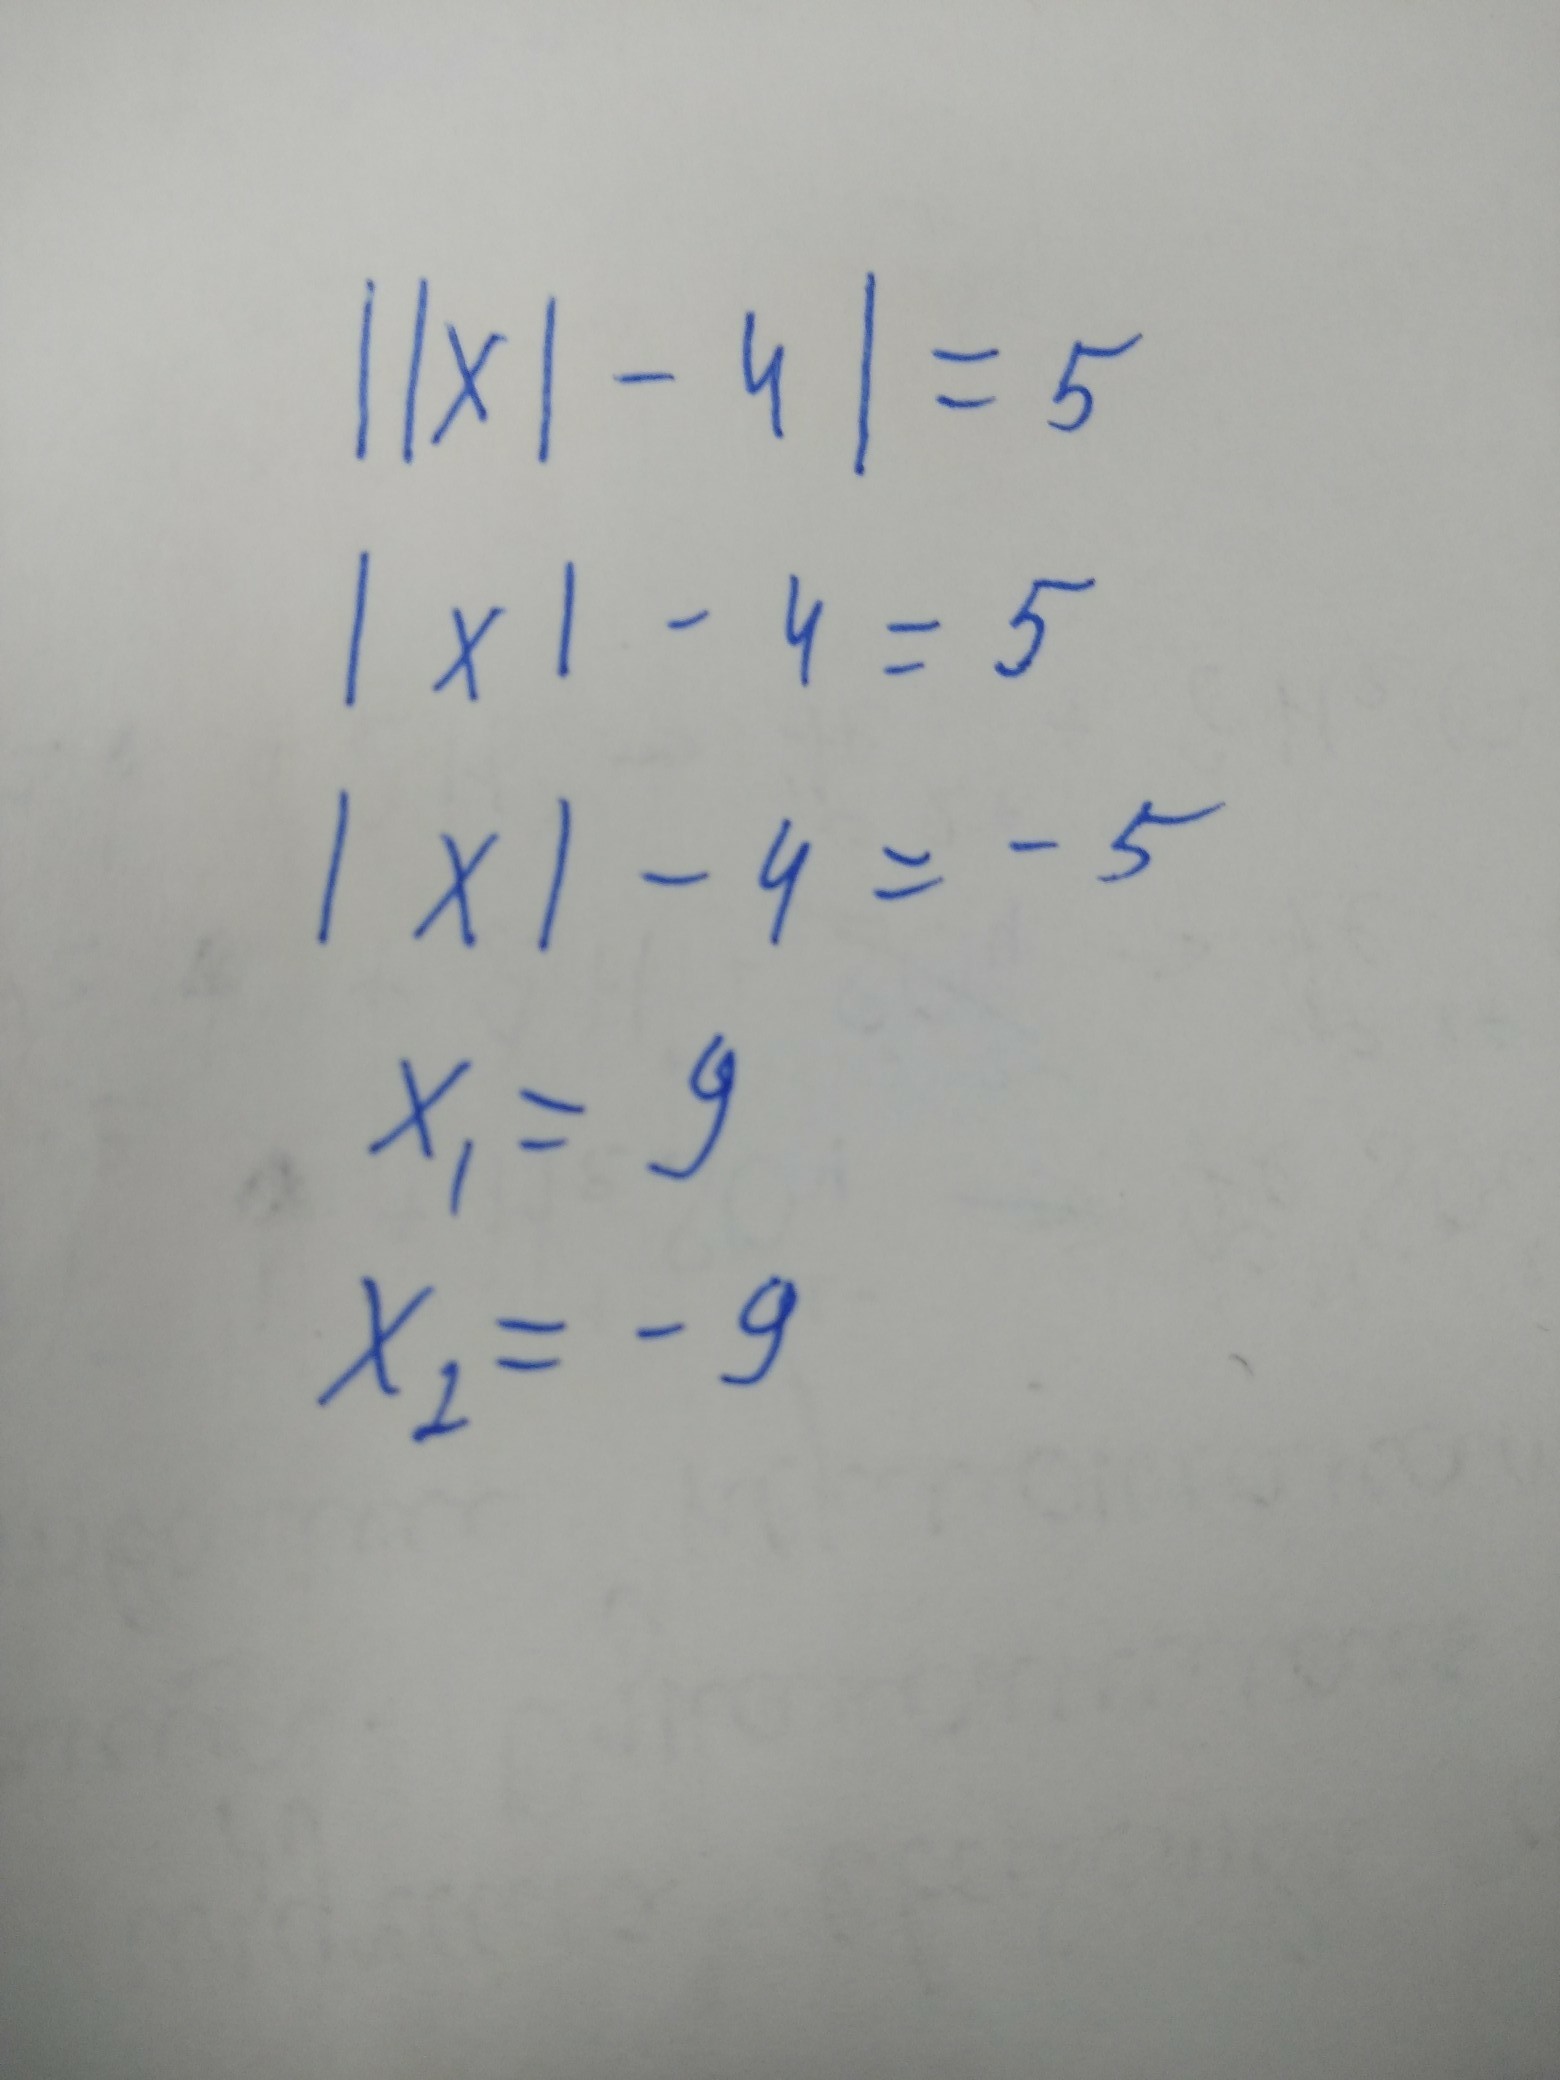 ||x| - 4| = 5
|x| - 4 = 5
|x| - 4 = - 5
x₁ = 9
x₂ = - 9